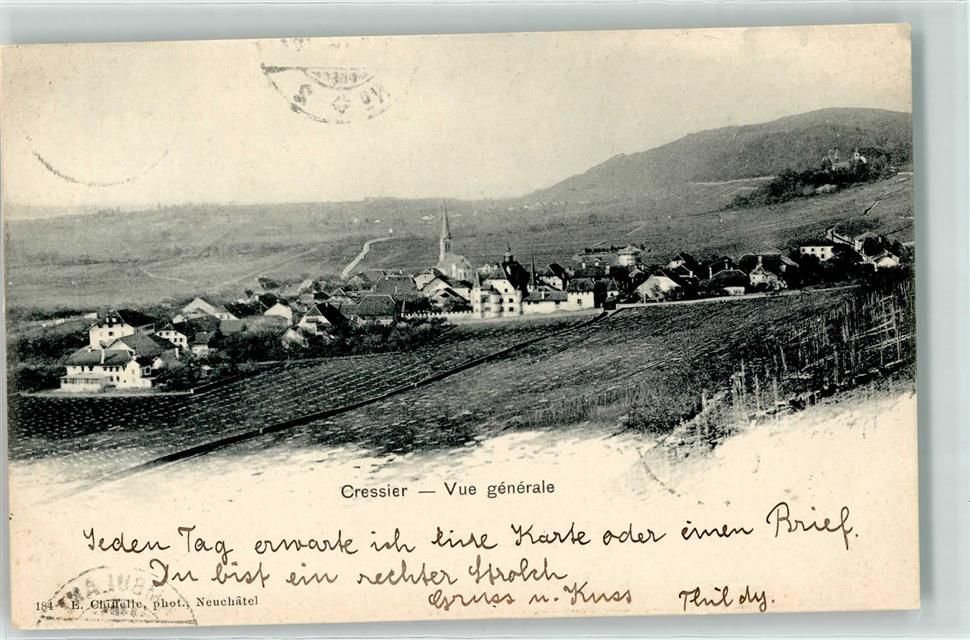 Cressier — Vue générale
Jeden Tag erwarte ich eine Karte oder einen Brief.
Du bist ein rechter Strolch
Gruss u. Kuss Thildy.
184 E. Chiffelle, phot., Neuchâtel
AMBULAN